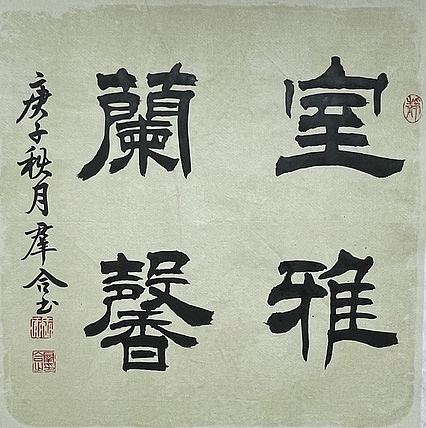 室雅
蘭馨
庚子秋月羣合書